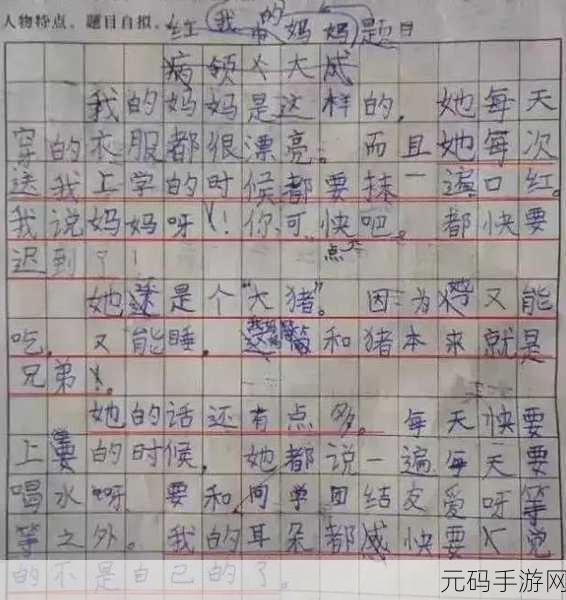 人物特点、题目自拟。 红 我的妈妈 题目
病领大成
我的妈妈是这样的，她每天
穿的衣服都很漂亮。而且她每次
送我上学的时候都要抹一遍口红。
我说妈妈呀！你可快吧。都快要
点
迟到了！
她还是个“大猪”。因为她又能
吃，又能睡。和猪本来就是
兄弟。
她的话还有点多。每天快要
上的时候，她都说一遍每天要
喝水呀，要和同学团结友爱呀等
等之外。我的耳朵都感快要觉
的不是自己的了。
元码手游网